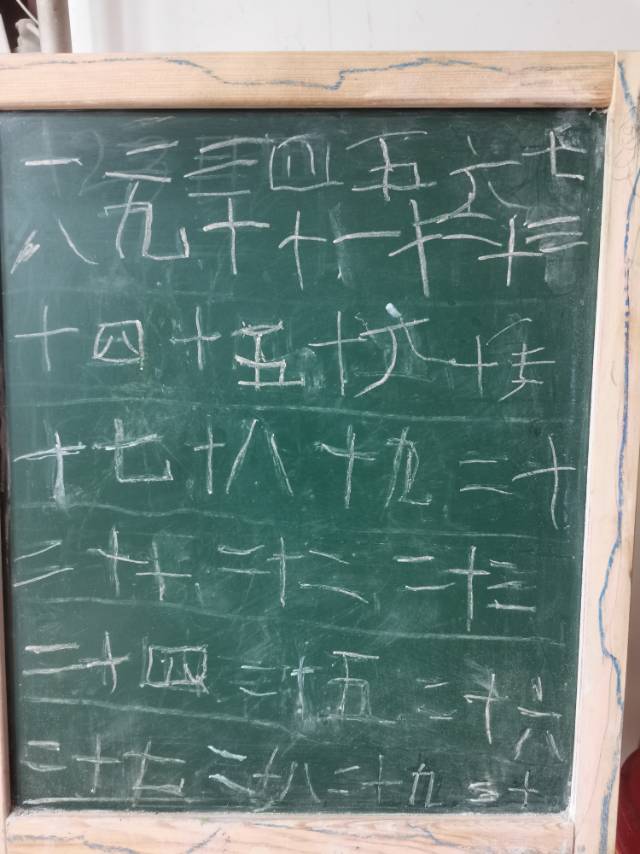 一 二 三 四 五 六 七
八 九 十 十一 十二 十三
十四 十五 十六 十
十七 十八 十九 二十
二十十 二十二 二十三
二十四 二十五 二十六
二十七 二十八 二十九 三十